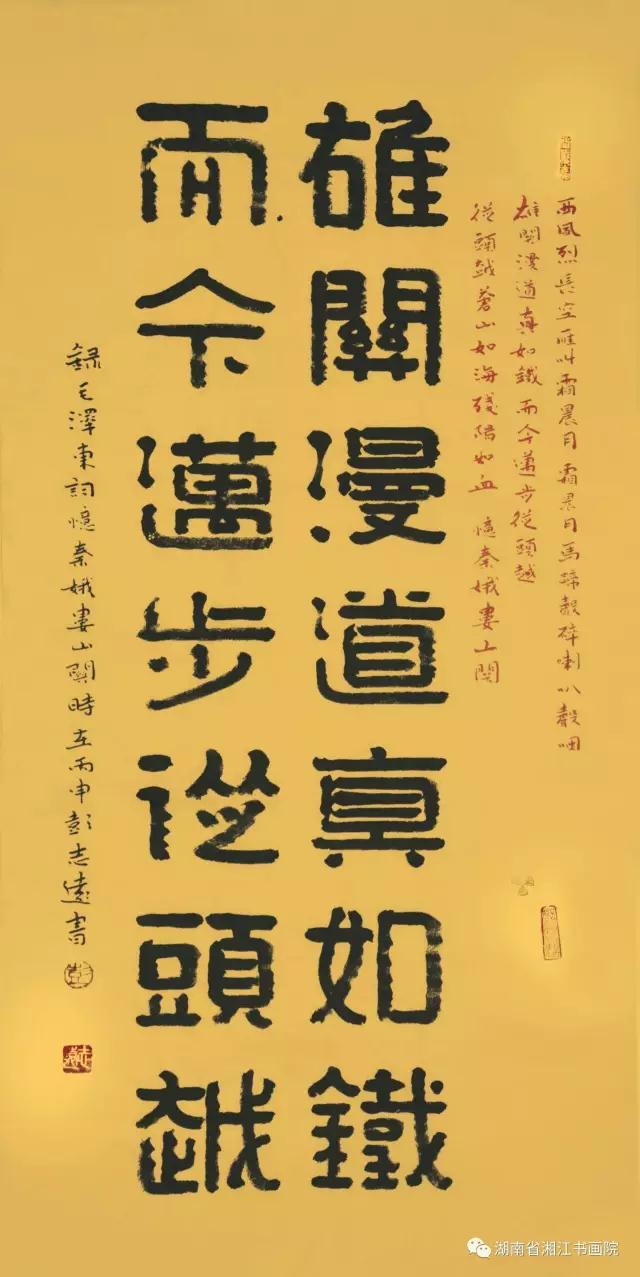 西風烈長空雁叫霜晨月霜晨月馬蹄聲碎喇叭聲咽
雄関漫道真如鐵而今邁步從頭越
從頭越蒼山如海殘陽如血 憶秦娥婁山関
雄關漫道真如鐵
而今邁步從頭越
錄毛澤東詞憶秦娥婁山關時在丙申彭志遠書
湖南省湘江书画院